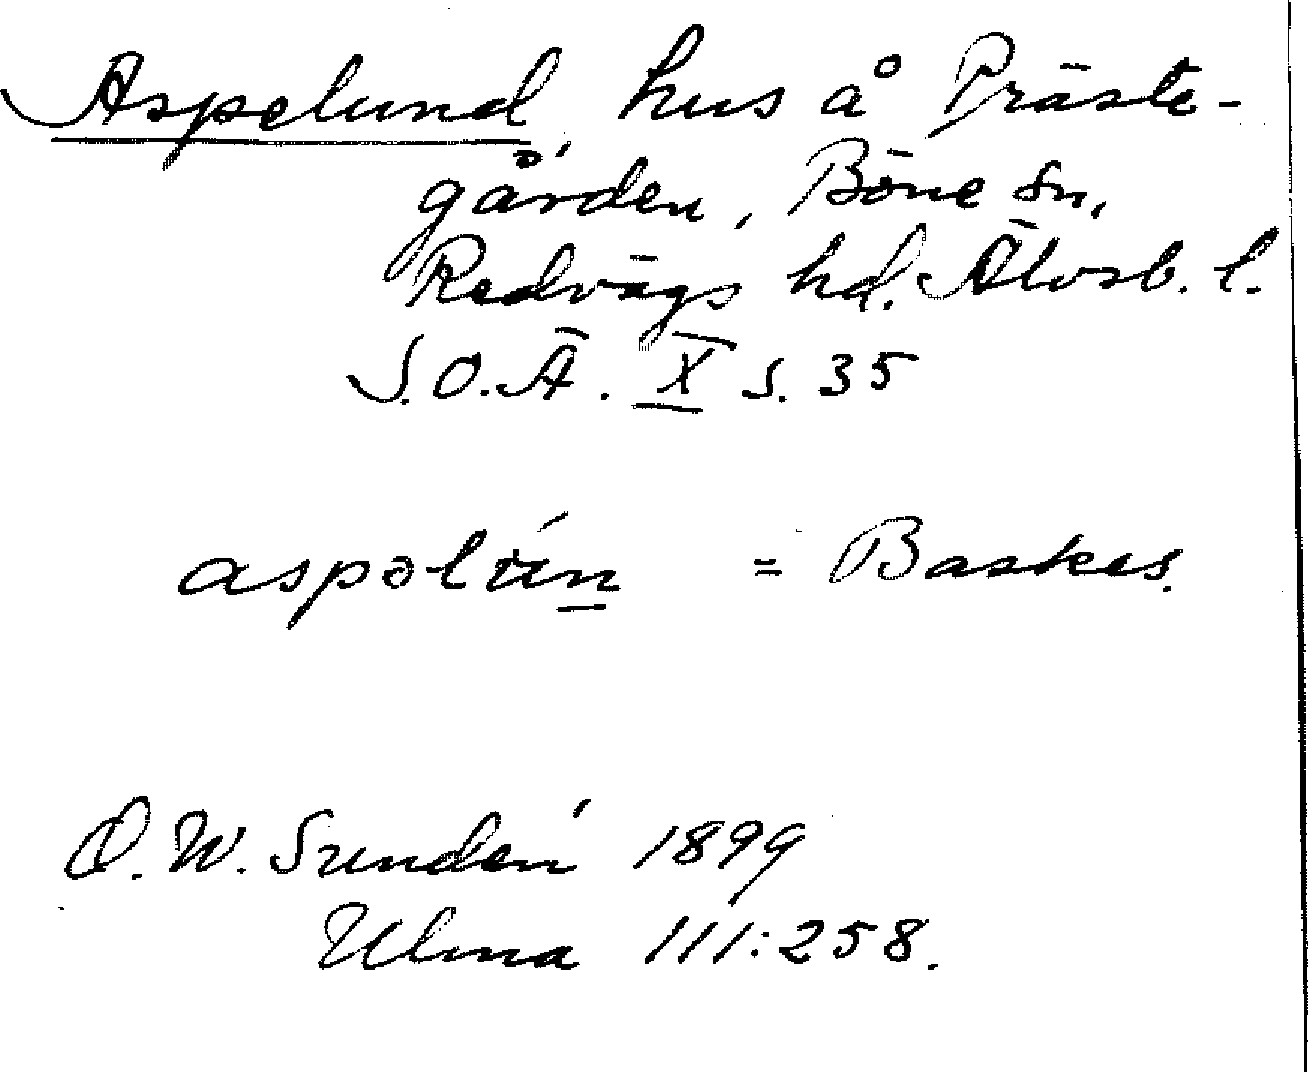 Aspelund, hus å Präste-
gården, Böne sn,
Redvägs hd. Älvsb. l.
S.O.Ä. X s. 35
= Baskes.
D. W. Sundén 1899
Ulma 111:258.